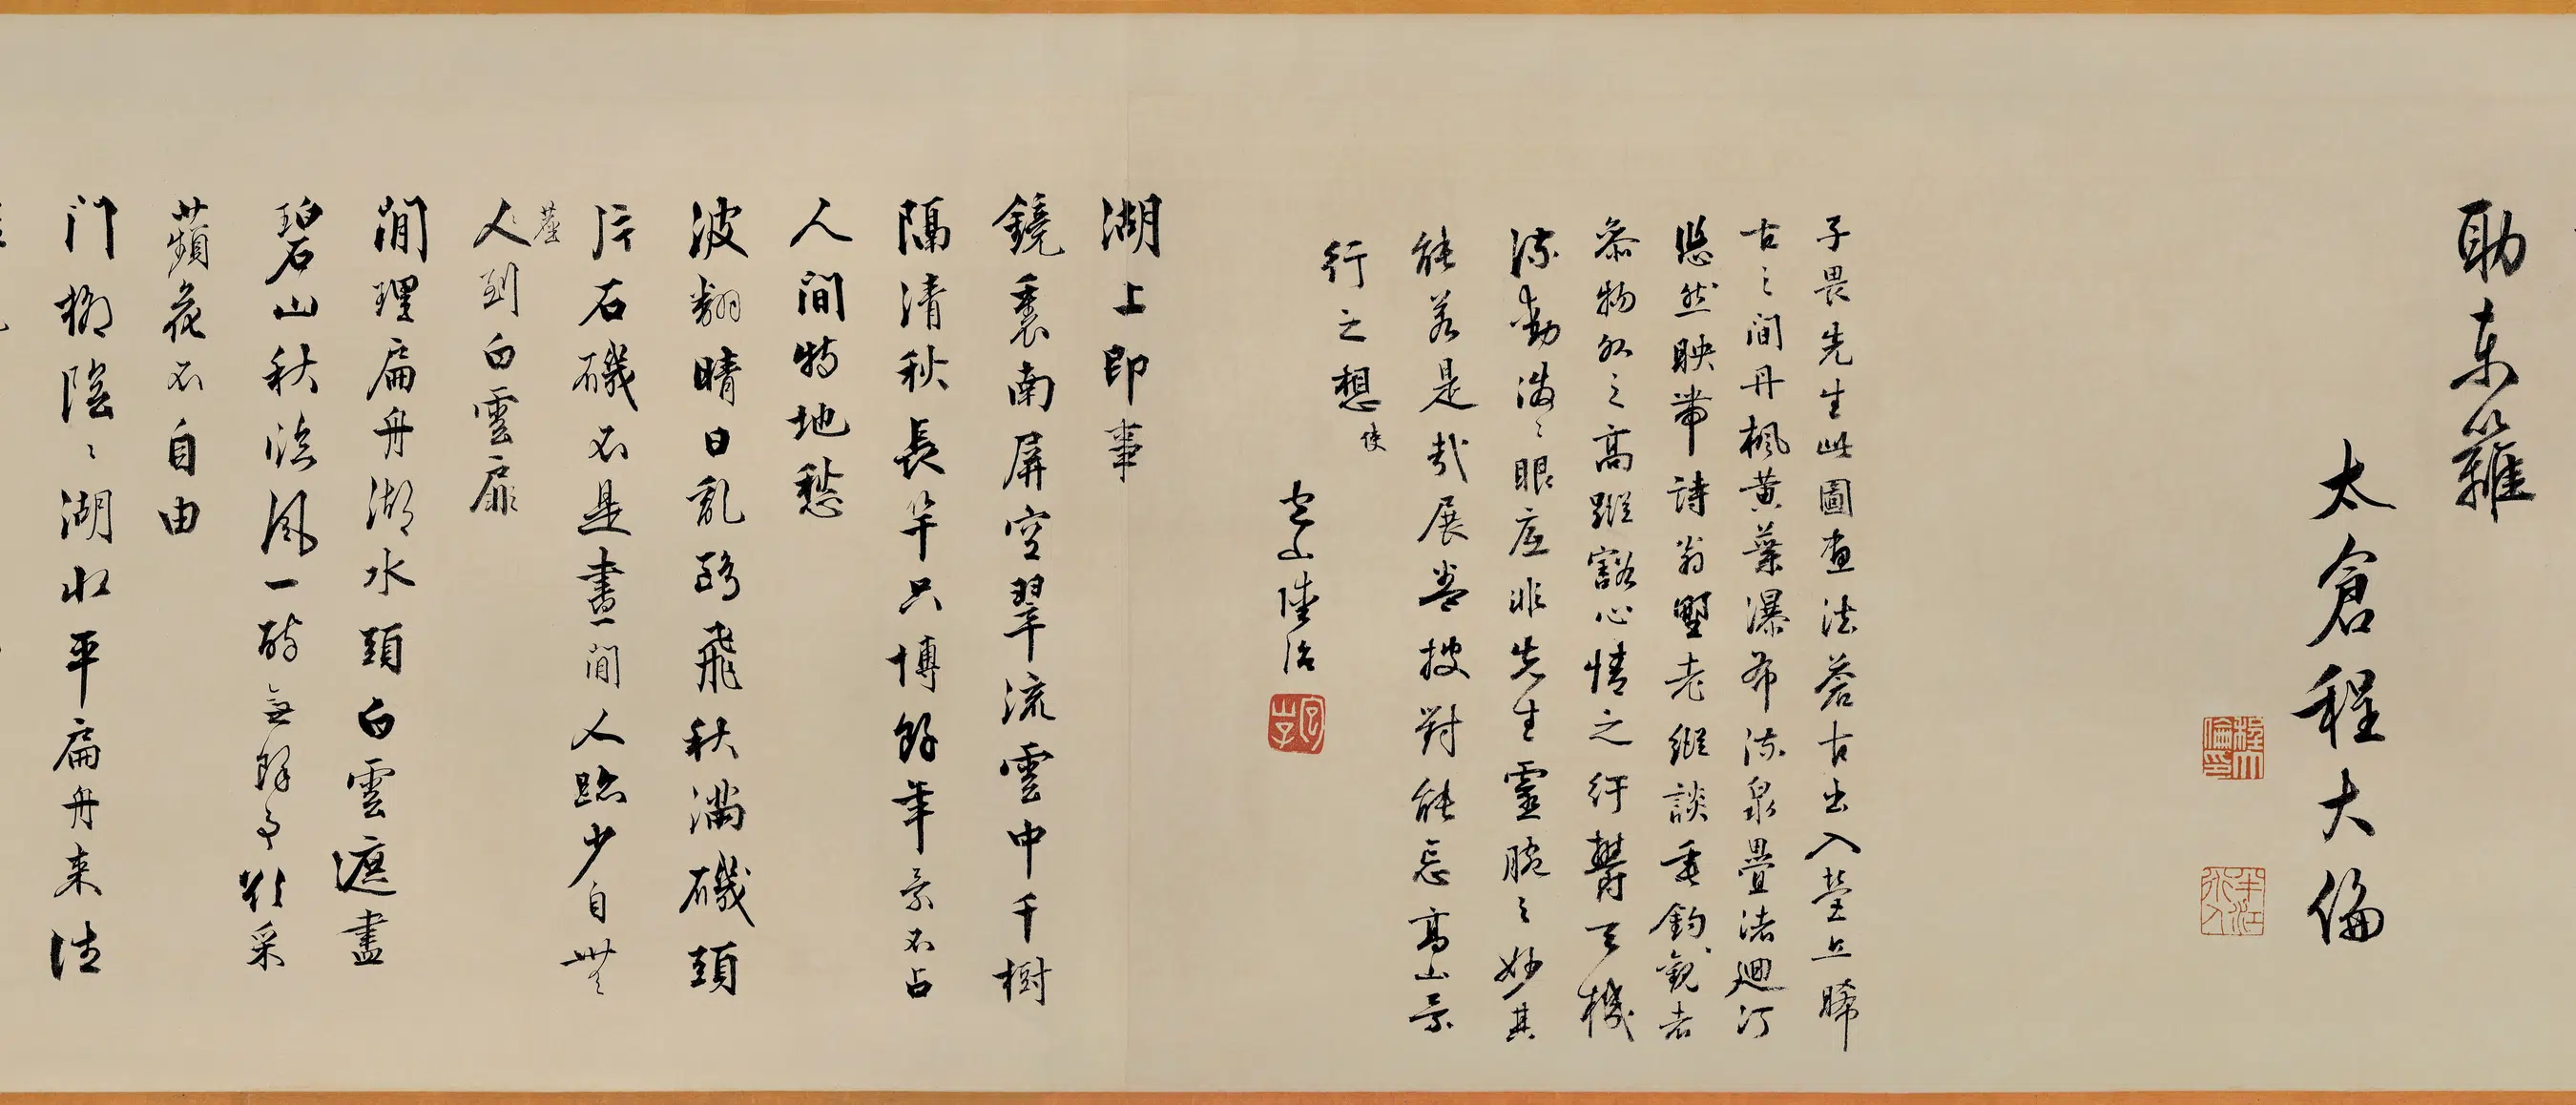 助東籬
太倉程大倫
程大倫印
子畏先生此圖畫法蒼古出入營丘晞
古之間丹楓黃葉瀑布流泉疊渚迴汀
悠然映帶詩翁墅老縱談垂釣觀者
忝物外之高蹤豁心情之行鬱天機
流動滿眼底非先生靈腕之妙其
能若是哉展卷披對能忘高山景
行之想
使
包山陸治
湖上即事
鏡裏南屏空翠流雲中千樹
隔清秋長竿只博餘年景不占
人間特地愁
波翻晴日亂鷗飛秋滿磯頭
片石磯不是畫間人跡少自無
塵
人到白雲扉
閒理扁舟湖水頭白雲遮盡
碧山秋臨風一酌無餘事歌采
蘋花不自由
門柳陰陰湖水平扁舟來往